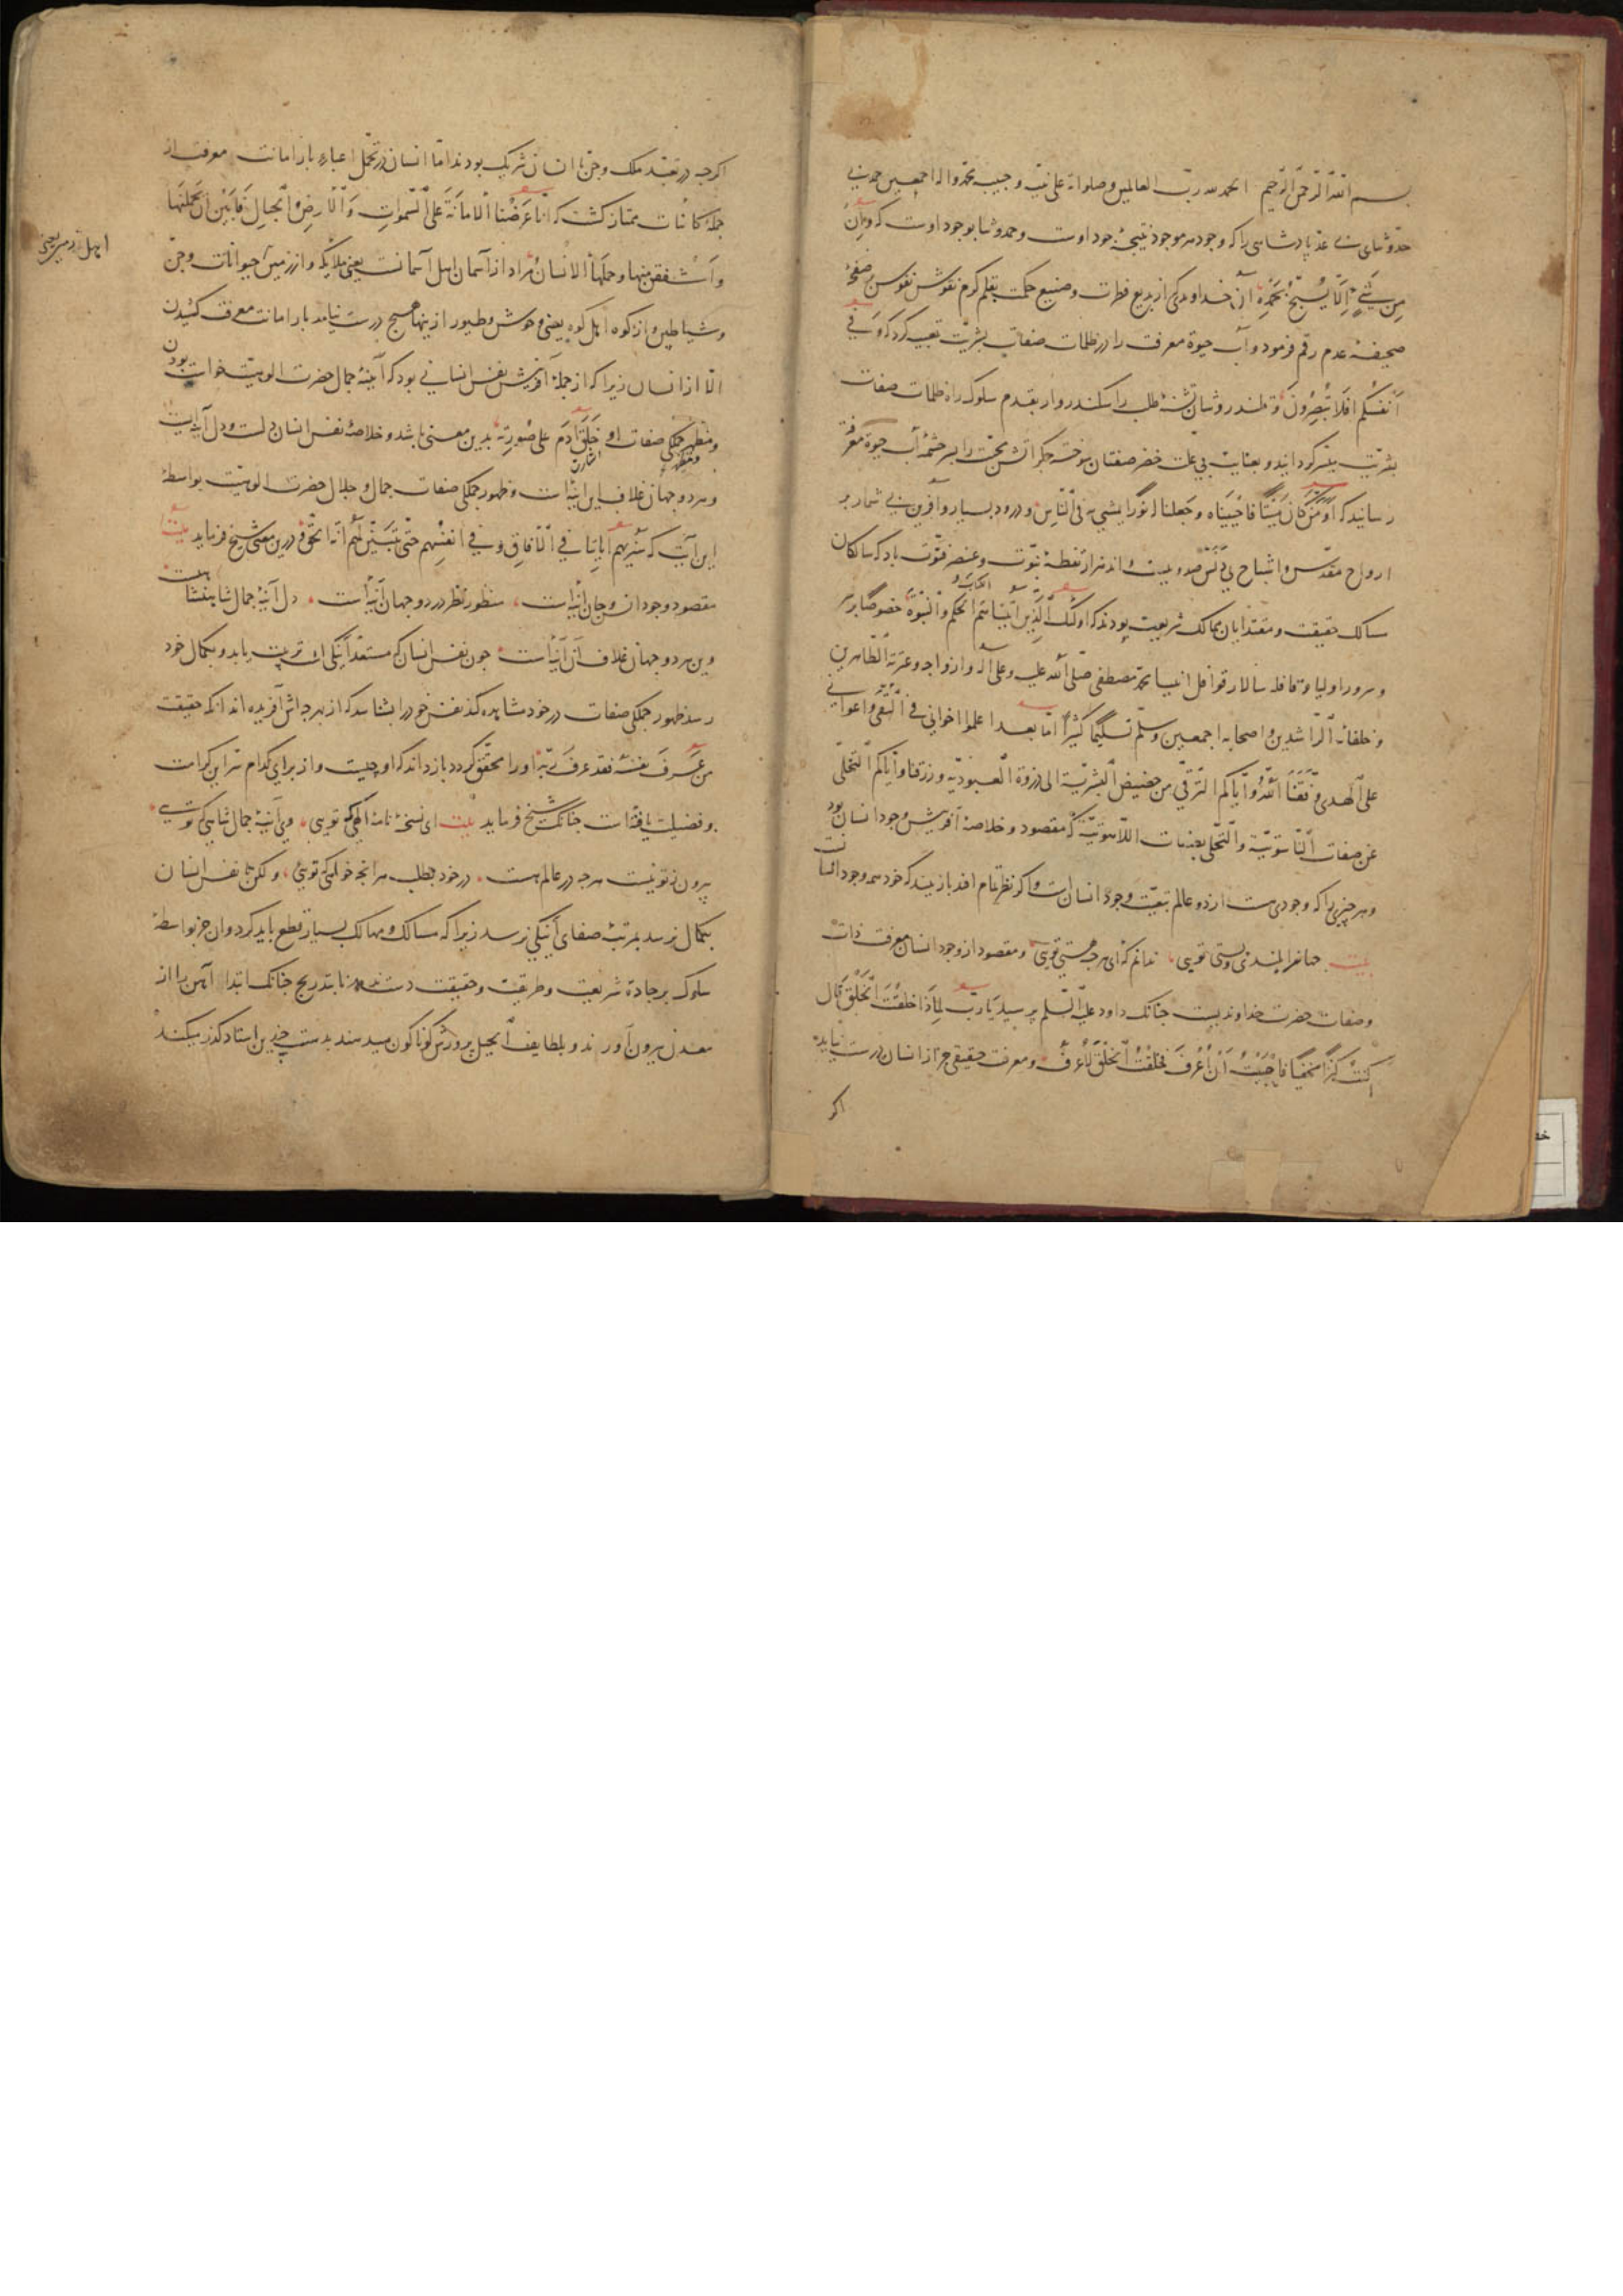 بسم الله الرحمن الرحیم الحمد لله رب العالمین وصلواته علی نبیه وحبیبه محمد واله اجمعین حمد بی
حد و ثنای بی عد پادشاهی را که وجود هر موجود نتیجهٔ جود اوست و حمد و ثنا بوجود اوست که وَاِنْ
مِن شَیْءٍ اِلّا یُسَبِّحُ بِحَمْدِهِ آن خداوندی که از بدیع فطرت و صنیع حکمت بقلم کرم نقوش نفوس بر صفحهٔ
صحیفهٔ عدم رقم فرمود و آب حیوة معرفت را در ظلمات صفات بشریت تعبیه کرد که وَفی
اَنفُسِکم اَفَلا تُبصِرونَ و قلندر وشان تشنهٔ طلب را سکندروار بقدم سلوک راه ظلمات صفات
بشریت میسر گردانید و بعنایت بی علت خضر صفتان سوخته جگر آتش محبت را بسر چشمهٔ آب حیوة معرفت
رسانید که اَوَمَنْ کانَ مَیتاً فاَحْیَیناه وَجَعَلنا له نوراً یمشی به فی الناس و درود بسیار و آفرین بی شمار بر
ارواح مقدس و اشباح بی دنس صد و بیست و اند هزار نقطهٔ نبوت و عنصر فتوت باد که سالکان
مسالک حقیقت و مقتدایان ممالک شریعت بودند که اولئک الذین آتیناهم الکتاب و الحکم والنبوة خصوصا بر
و سرور اولیا و قافله سالار قوافل انبیا محمد مصطفی صلی الله علیه وعلی آله و ازواجه وعترته الطاهرین
و خلفائه الراشدین و اصحابه اجمعین وسلم تسلیما کثیرا اما بعد اعلموا اخوانی فی التقی واعوانی
علی الهدی وَفَّقَنَا الله وایاکم الترقی من حضیض البشریة الی ذروة العبودیه ورزقنا وایاکم التخلی
عن صفات الناسوتیة والتحلی بصفات اللاهوتیة که مقصود و خلاصهٔ آفرینش وجود انسان بود
و هر چیزی را که وجودی هست از دو عالم بتبعیت وجود انسان است و اگر نظر تمام افتد باز بیند که خود همه وجود انسانست
بیت جهانرا بلندی و پستی تویی ندانم که‌ای هر چه هستی تویی و مقصود از وجود انسان معرفت ذات
و صفات حضرت خداوندیست چنانک داود علیه السلم پرسید یا رب لِماذا خلقتَ الخلق قال
کنتُ کنزاً مخفیاً فاحببتُ اَن اُعرَف فخلقتُ الخلق لِاُعرَف و معرفت حقیقی جز از انسان درست نیاید
اگر
اگرچه در تعبد ملک و جن با انسان شریک بودند اما انسان در تحمل اعباء بار امانت معرفت از
جملهٔ کائنات ممتاز گشت که انا عَرَضْنا الامانَةَ علی السموات وَالارضِ والجبالِ فابین ان یحملنها
واشفقن منها وحملها الانسان مراد از آسمان اهل آسمانست یعنی ملایکه و از زمین حیوانات و جن
اهل زمین یعنی
و شیاطین و از کوه اهل کوه یعنی وحوش و طیور از ینها هیچ درست نیامد بار امانت معرفت کشیدن
الا از انسان زیرا که از جملهٔ آفرینش نفس انسانی بود که آینهٔ جمال حضرت الوهیت خواست بودن
و مظهر جملگی صفات او خَلَقَ آدَمَ علی صُورتِه بدین معنی باشد و خلاصهٔ نفس انسان دلست و دل آینه است
و هر دو جهان غلاف این آینه است و ظهور جملگی صفات جمال و جلال حضرت الوهیت بواسطهٔ
این آینه که سَنُرِیهِم آیاتِنا فی الآفاق وفی انفسهم حتی یتبین لهم انه الحق درین معنی شیخ فرماید بیت
مقصود وجود انس و جان آینه است منظور نظر در دو جهان آینه است دل آینهٔ جمال شاهنشاهیست
وین هر دو جهان غلاف آن آینه است چون نفس انسان که مستعد آینگی است تربیت یابد و بکمال خود
رسد ظهور جملگی صفات در خود مشاهده کند نفس خود را بشناسد که از بهر چه اش آفریده اند آنگه حقیقت
من عَرَفَ نفسَهُ فقد عرف ربَّه او را محقق گردد باز داند که او چیست و از برای کدام سر این کرامت
و فضیلت یافته است چنانک شیخ فرماید بیت ای نسخهٔ نامهٔ الهی که تویی وی آینهٔ جمال شاهی که تویی
بیرون ز تو نیست هر چه در عالم هست در خود بطلب هر آنچه خواهی که تویی ولکن تا نفس انسان
بکمال نرسد بمرتبهٔ صفای آینگی نرسد زیرا که مسالک و مهالک بسیار قطع باید کرد و آن جز بواسطهٔ
سلوک بر جادهٔ شریعت و طریقت و حقیقت دست ندهد تا بتدریج چنانک ابتدا آهن را از
معدن بیرون آورند و بلطایف الحیل پرورش گوناگون میدهند بدست چندین استاد گذر میکند